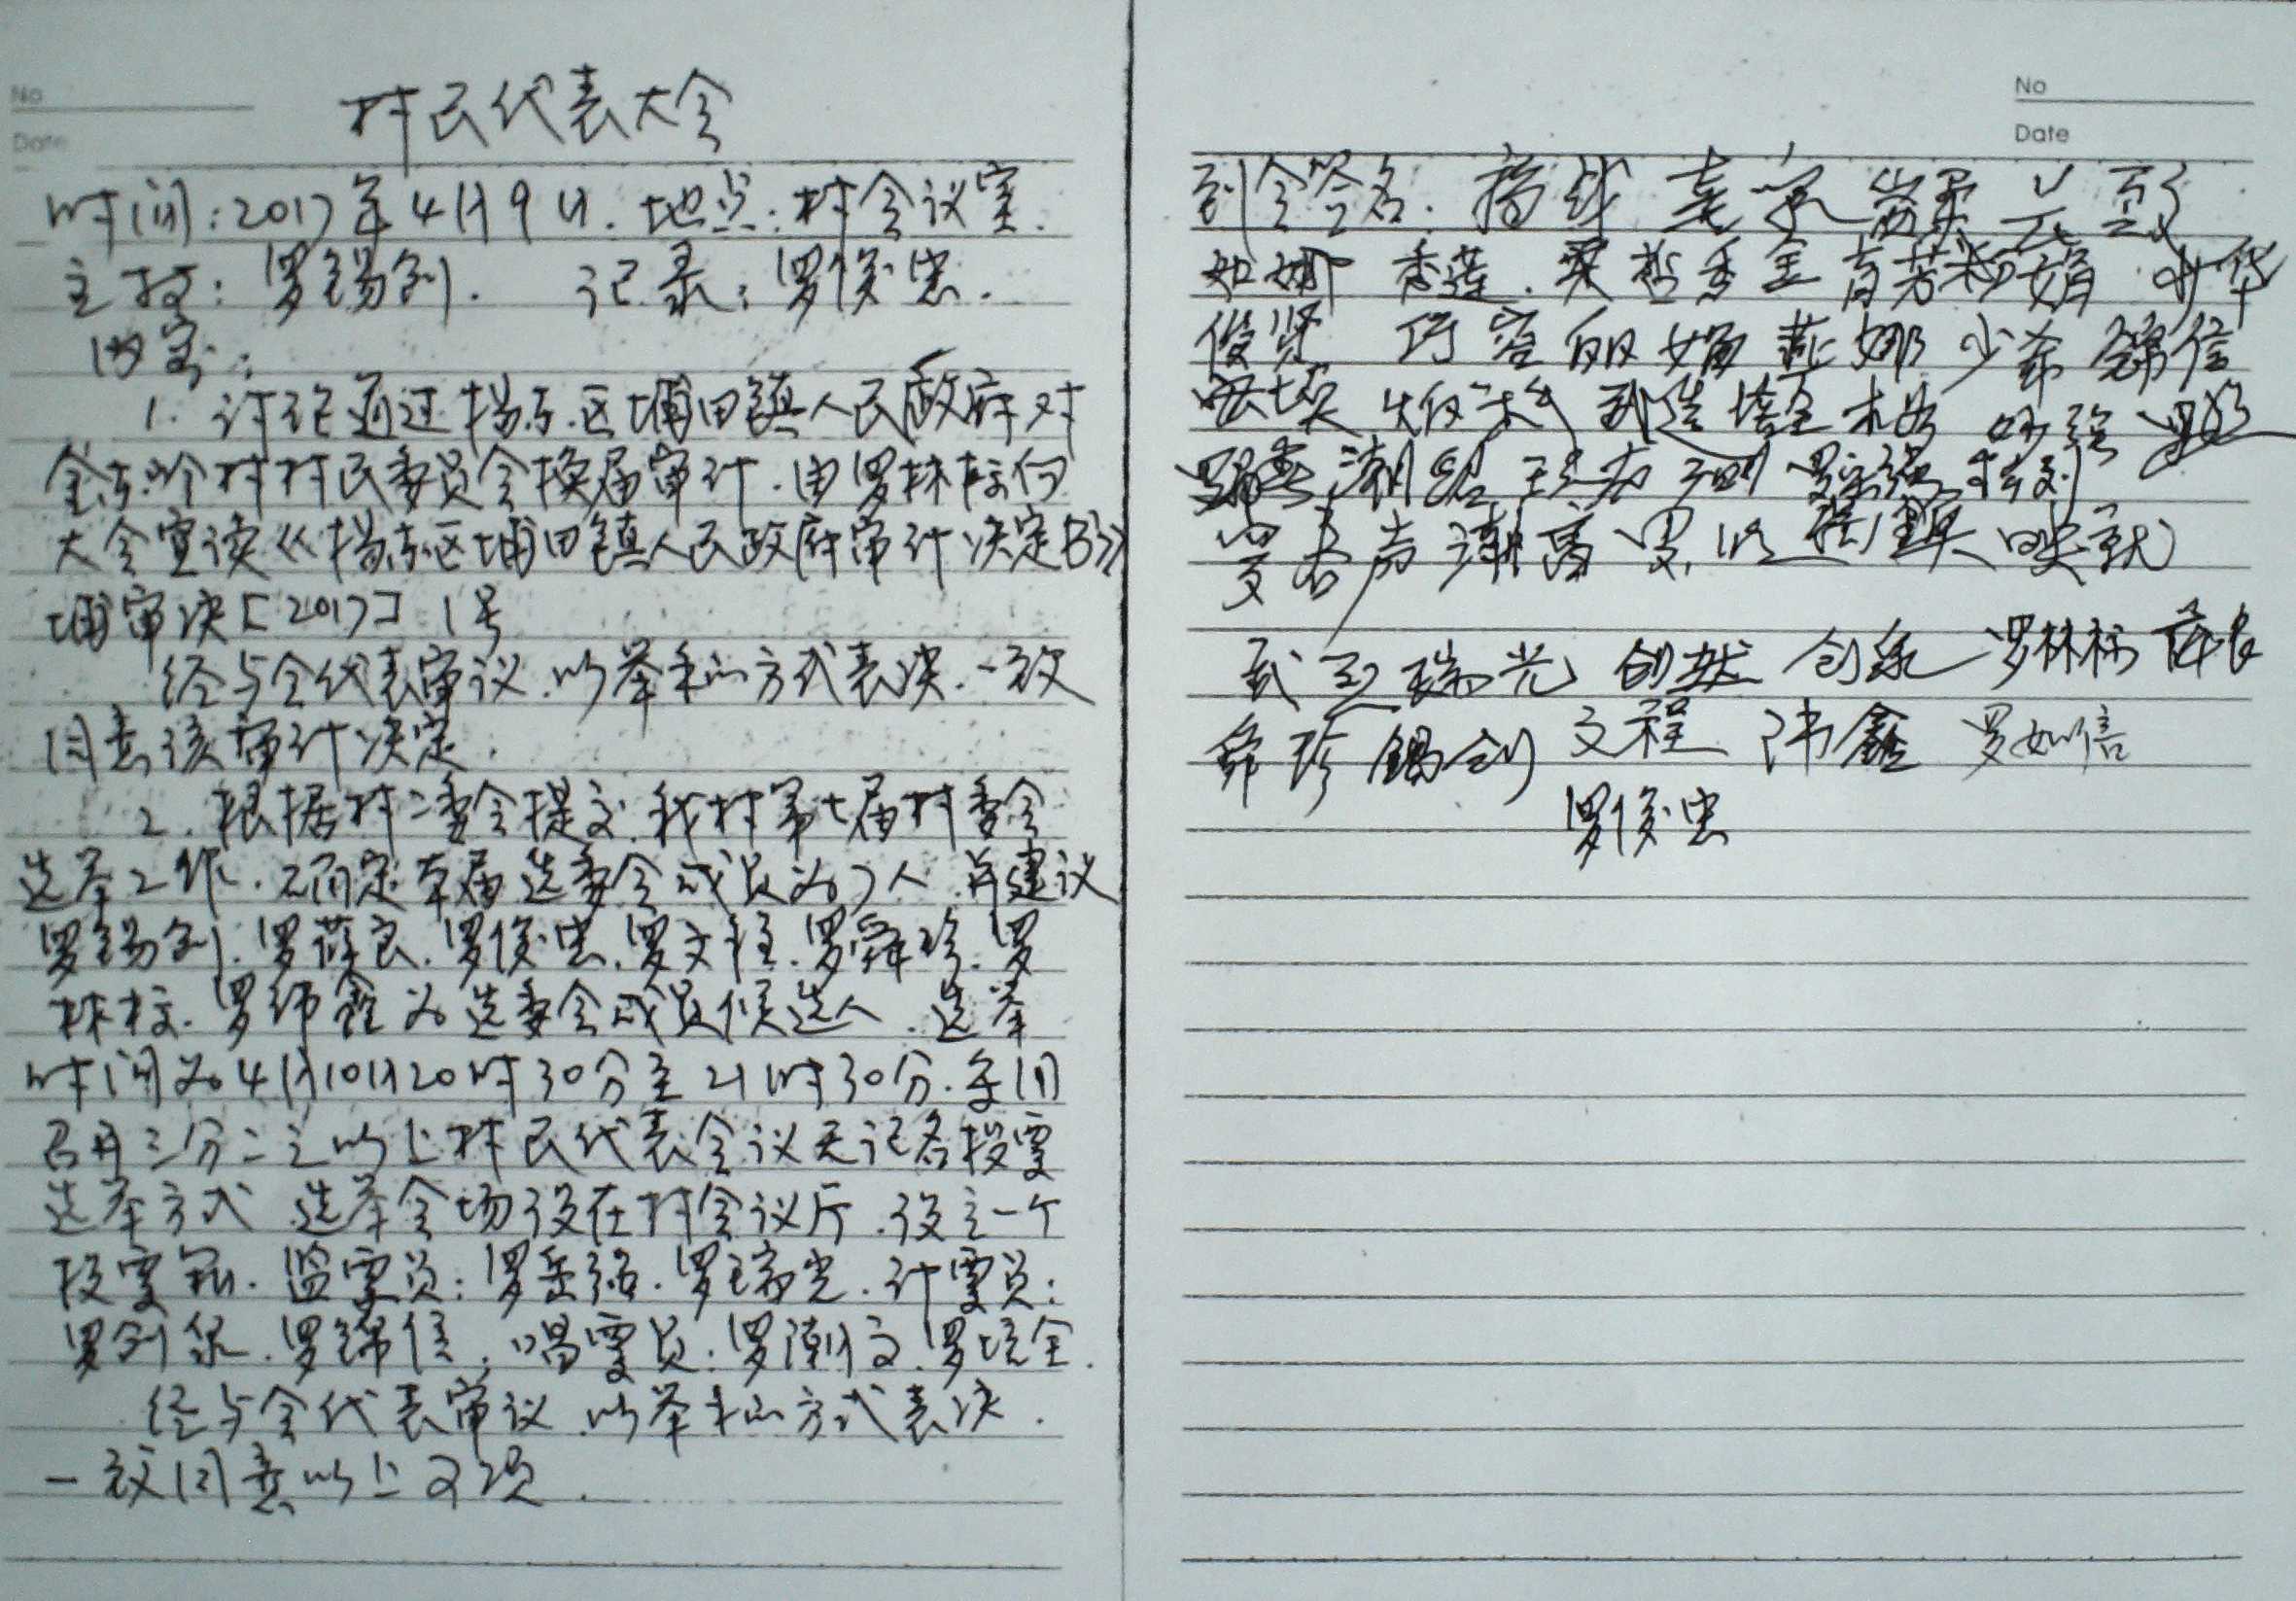 No
Date
村民代表大会
时间:2017年4月9日.地点:村会议室.
主持:罗锡剑. 记录:罗俊忠.
内容:
1. 讨论通过揭东区埔田镇人民政府对
金东岭村村民委员会换届审计.由罗林标向
大会宣读《揭东区埔田镇人民政府审计决定书》
埔审决[2017] 1号
经与会代表审议.以举手的方式表决.一致
同意该审计决定.
2.根据村二委会提交.我村第七届村委会
选举工作.确定本届选委会成员为7人.并建议
罗锡剑.罗葆良.罗俊忠.罗文程.罗舜珍.罗
林标.罗纬鑫为选委会成员候选人.选举
时间为4月10日20时30分至21时30分.采用
召开三分二之以上村民代表会议无记名投票
选举方式.选举会场设在村会议厅.设立一个
投票箱.监票员:罗岳强.罗瑞光.计票员:
罗创泉.罗锦信.唱票员:罗潮文.罗培全.
经与会代表审议.以举手的方式表决.
一致同意以上2项.
No
Date
到会签名.
如娜 香莲. 香金 育芳 娟 华
俊贤 巧容 丽娟 燕娜 少希 锦信
培全
潮
声 潮 罗 映就
武 瑞光 创 创泉 罗林标 葆良
舜珍 锡剑 文程 纬鑫 罗如信
罗俊忠